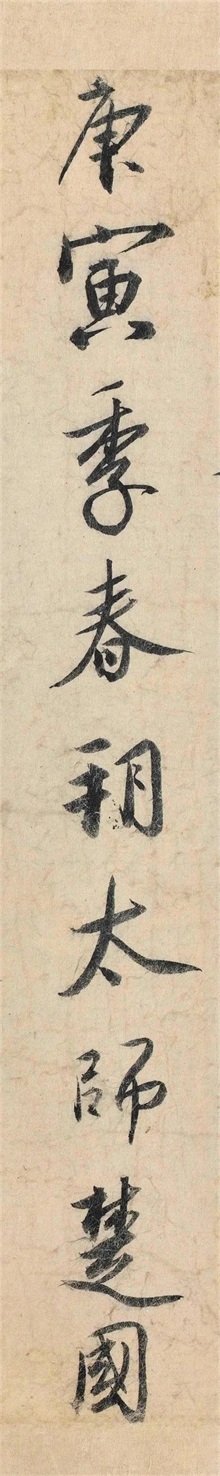 庚寅季春朔太師楚國